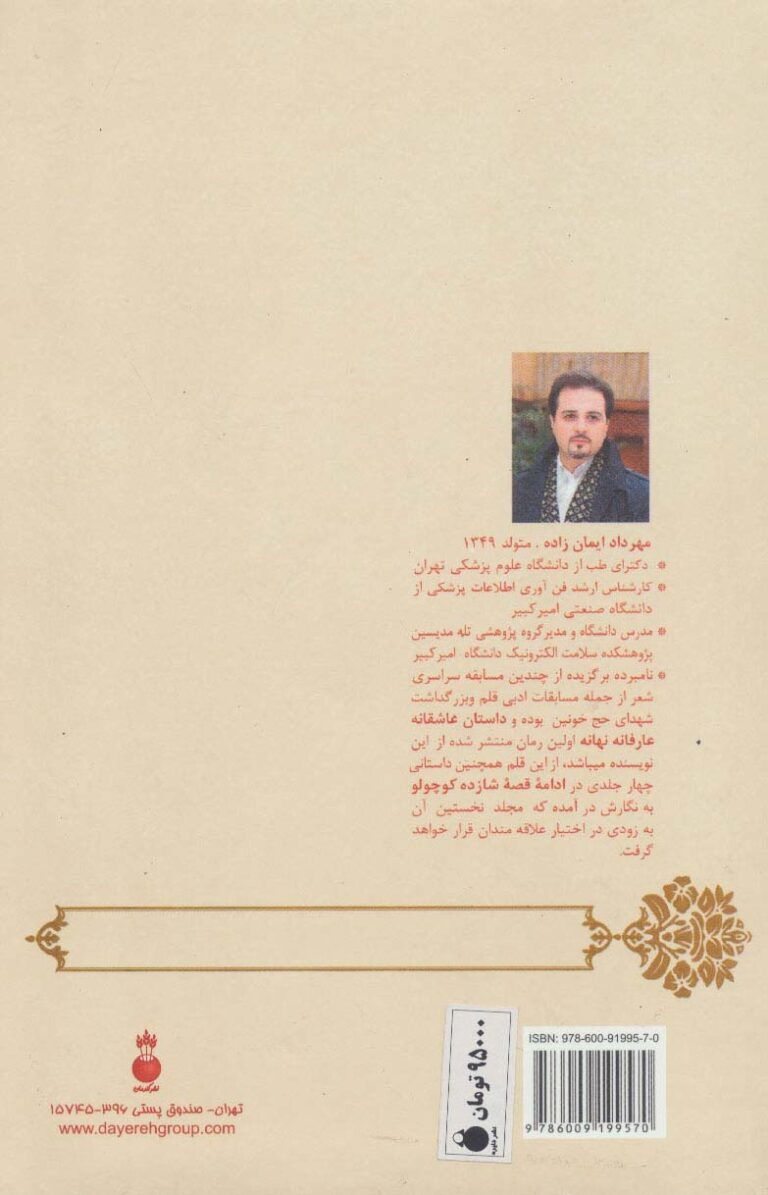 مهرداد ایمان زاده . متولد ۱۳۴۹
* دکترای طب از دانشگاه علوم پزشکی تهران
* کارشناس ارشد فن آوری اطلاعات پزشکی از
دانشگاه صنعتی امیرکبیر
* مدرس دانشگاه و مدیر گروه پژوهشی تله مدیسین
پژوهشکده سلامت الکترونیک دانشگاه امیرکبیر
* نامبرده برگزیده از چندین مسابقه سراسری
شعر از جمله مسابقات ادبی قلم وبزرگداشت
شهدای حج خونین بوده و داستان عاشقانه
عارفانه نهانه اولین رمان منتشر شده از این
نویسنده میباشد، از این قلم همچنین داستانی
چهار جلدی در ادامۀ قصۀ شازده کوچولو
به نگارش در آمده که مجلد نخستین آن
به زودی در اختیار علاقه مندان قرار خواهد
گرفت.
تهران- صندوق پستی ۳۹۶-۱۵۷۴۵
www.dayerehgroup.com
۹۵۰۰۰ تومان
نشر دایره
ISBN: 978-600-91995-7-0
9 786009 199570